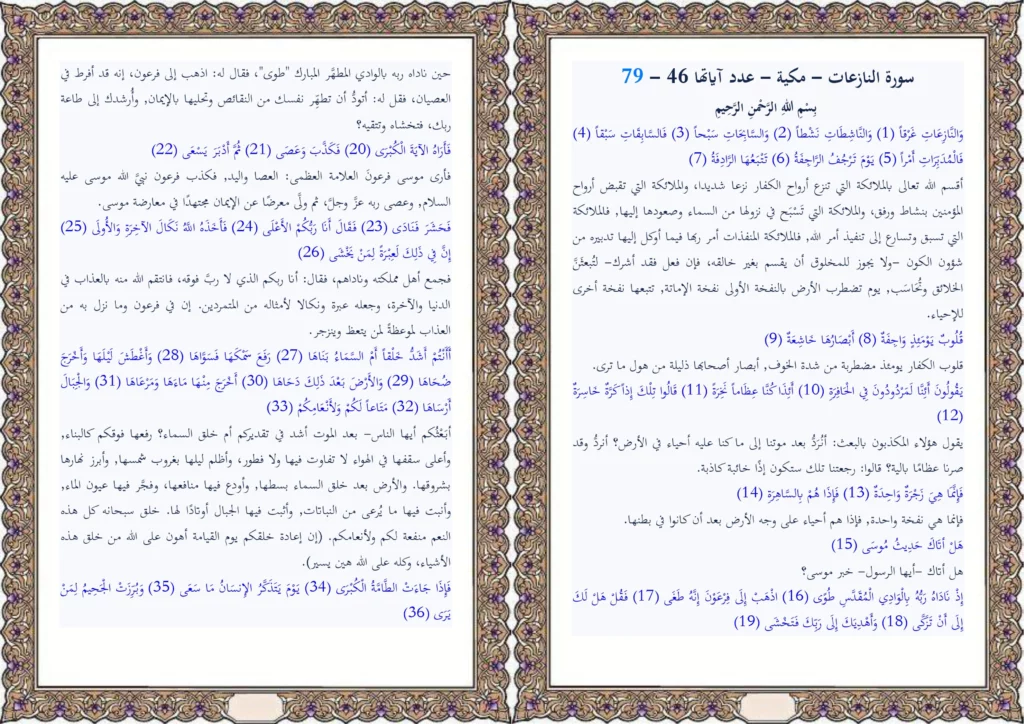 سورة النازعات – مكية – عدد آياتها 46 – 79
بِسْمِ اللهِ الرَّحْمنِ الرَّحِيمِ
وَالنَّازِعَاتِ غَرْقاً (1) وَالنَّاشِطَاتِ نَشْطاً (2) وَالسَّابِحَاتِ سَبْحاً (3) فَالسَّابِقَاتِ سَبْقاً (4)
فَالْمُدَبِّرَاتِ أَمْراً (5) يَوْمَ تَرْجُفُ الرَّاجِفَةُ (6) تَتْبَعُهَا الرَّادِفَةُ (7)
أقسم الله تعالى بالملائكة التي تنزع أرواح الكفار نزعا شديدا، والملائكة التي تقبض أرواح
المؤمنين بنشاط ورفق، والملائكة التي تَسْبَح في نزولها من السماء وصعودها إليها, فالملائكة
التي تسبق وتسارع إلى تنفيذ أمر الله, فالملائكة المنفذات أمر ربها فيما أوكل إليها تدبيره من
شؤون الكون –ولا يجوز للمخلوق أن يقسم بغير خالقه، فإن فعل فقد أشرك– لتُبعثَنَّ
الخلائق وتُحَاسَب, يوم تضطرب الأرض بالنفخة الأولى نفخة الإماتة, تتبعها نفخة أخرى
للإحياء.
قُلُوبٌ يَوْمَئِذٍ وَاجِفَةٌ (8) أَبْصَارُهَا خَاشِعَةٌ (9)
قلوب الكفار يومئذ مضطربة من شدة الخوف, أبصار أصحابها ذليلة من هول ما ترى.
يَقُولُونَ أَئِنَّا لَمَرْدُودُونَ فِي الْحَافِرَةِ (10) أَئِذَا كُنَّا عِظَاماً نَخِرَةً (11) قَالُوا تِلْكَ إِذاً كَرَّةٌ خَاسِرَةٌ
(12)
يقول هؤلاء المكذبون بالبعث: أنُرَدُّ بعد موتنا إلى ما كنا عليه أحياء في الأرض؟ أنردُّ وقد
صرنا عظامًا بالية؟ قالوا: رجعتنا تلك ستكون إذًا خائبة كاذبة.
فَإِنَّمَا هِيَ زَجْرَةٌ وَاحِدَةٌ (13) فَإِذَا هُمْ بِالسَّاهِرَةِ (14)
فإنما هي نفخة واحدة, فإذا هم أحياء على وجه الأرض بعد أن كانوا في بطنها.
هَلْ أتَاكَ حَدِيثُ مُوسَى (15)
هل أتاك –أيها الرسول– خبر موسى؟
إِذْ نَادَاهُ رَبُّهُ بِالْوَادِي الْمُقَدَّسِ طُوًى (16) اذْهَبْ إِلَى فِرْعَوْنَ إِنَّهُ طَغَى (17) فَقُلْ هَلْ لَكَ
إِلَى أَنْ تَزَكَّى (18) وَأَهْدِيَكَ إِلَى رَبِّكَ فَتَخْشَى (19)
حين ناداه ربه بالوادي المطهَّر المبارك "طوى"، فقال له: اذهب إلى فرعون، إنه قد أفرط في
العصيان، فقل له: أتودُّ أن تطهِّر نفسك من النقائص وتحليها بالإيمان, وأُرشدك إلى طاعة
ربك، فتخشاه وتتقيه؟
فَأَرَاهُ الآيَةَ الْكُبْرَى (20) فَكَذَّبَ وَعَصَى (21) ثُمَّ أَدْبَرَ يَسْعَى (22)
فأرى موسى فرعونَ العلامة العظمى: العصا واليد, فكذب فرعون نبيَّ الله موسى عليه
السلام, وعصى ربه عزَّ وجلَّ، ثم ولَّى معرضًا عن الإيمان مجتهدًا في معارضة موسى.
فَحَشَرَ فَنَادَى (23) فَقَالَ أَنَا رَبُّكُمْ الأَعْلَى (24) فَأَخَذَهُ اللهُ نَكَالَ الآخِرَةِ وَالأُولَى (25)
إِنَّ فِي ذَلِكَ لَعِبْرَةً لِمَنْ يَخْشَى (26)
فجمع أهل مملكته وناداهم، فقال: أنا ربكم الذي لا ربَّ فوقه، فانتقم الله منه بالعذاب في
الدنيا والآخرة، وجعله عبرة ونكالا لأمثاله من المتمردين. إن في فرعون وما نزل به من
العذاب لموعظةً لمن يتعظ وينزجر.
أَأَنْتُمْ أَشَدُّ خَلْقاً أَمْ السَّمَاءُ بَنَاهَا (27) رَفَعَ سَمْكَهَا فَسَوَّاهَا (28) وَأَغْطَشَ لَيْلَهَا وَأَخْرَجَ
ضُحَاهَا (29) وَالأَرْضَ بَعْدَ ذَلِكَ دَحَاهَا (30) أَخْرَجَ مِنْهَا مَاءَهَا وَمَرْعَاهَا (31) وَالْجِبَالَ
أَرْسَاهَا (32) مَتَاعاً لَكُمْ وَلأَنْعَامِكُمْ (33)
أبَعْثُكم أيها الناس– بعد الموت أشد في تقديركم أم خلق السماء؟ رفعها فوقكم كالبناء,
وأعلى سقفها في الهواء لا تفاوت فيها ولا فطور، وأظلم ليلها بغروب شمسها, وأبرز نهارها
بشروقها. والأرض بعد خلق السماء بسطها, وأودع فيها منافعها، وفجَّر فيها عيون الماء,
وأنبت فيها ما يُرعى من النباتات, وأثبت فيها الجبال أوتادًا لها. خلق سبحانه كل هذه
النعم منفعة لكم ولأنعامكم. (إن إعادة خلقكم يوم القيامة أهون على الله من خلق هذه
الأشياء، وكله على الله هين يسير).
فَإِذَا جَاءَتْ الطَّامَّةُ الْكُبْرَى (34) يَوْمَ يَتَذَكَّرُ الإِنسَانُ مَا سَعَى (35) وَبُرِّزَتْ الْجَحِيمُ لِمَنْ
يَرَى (36)